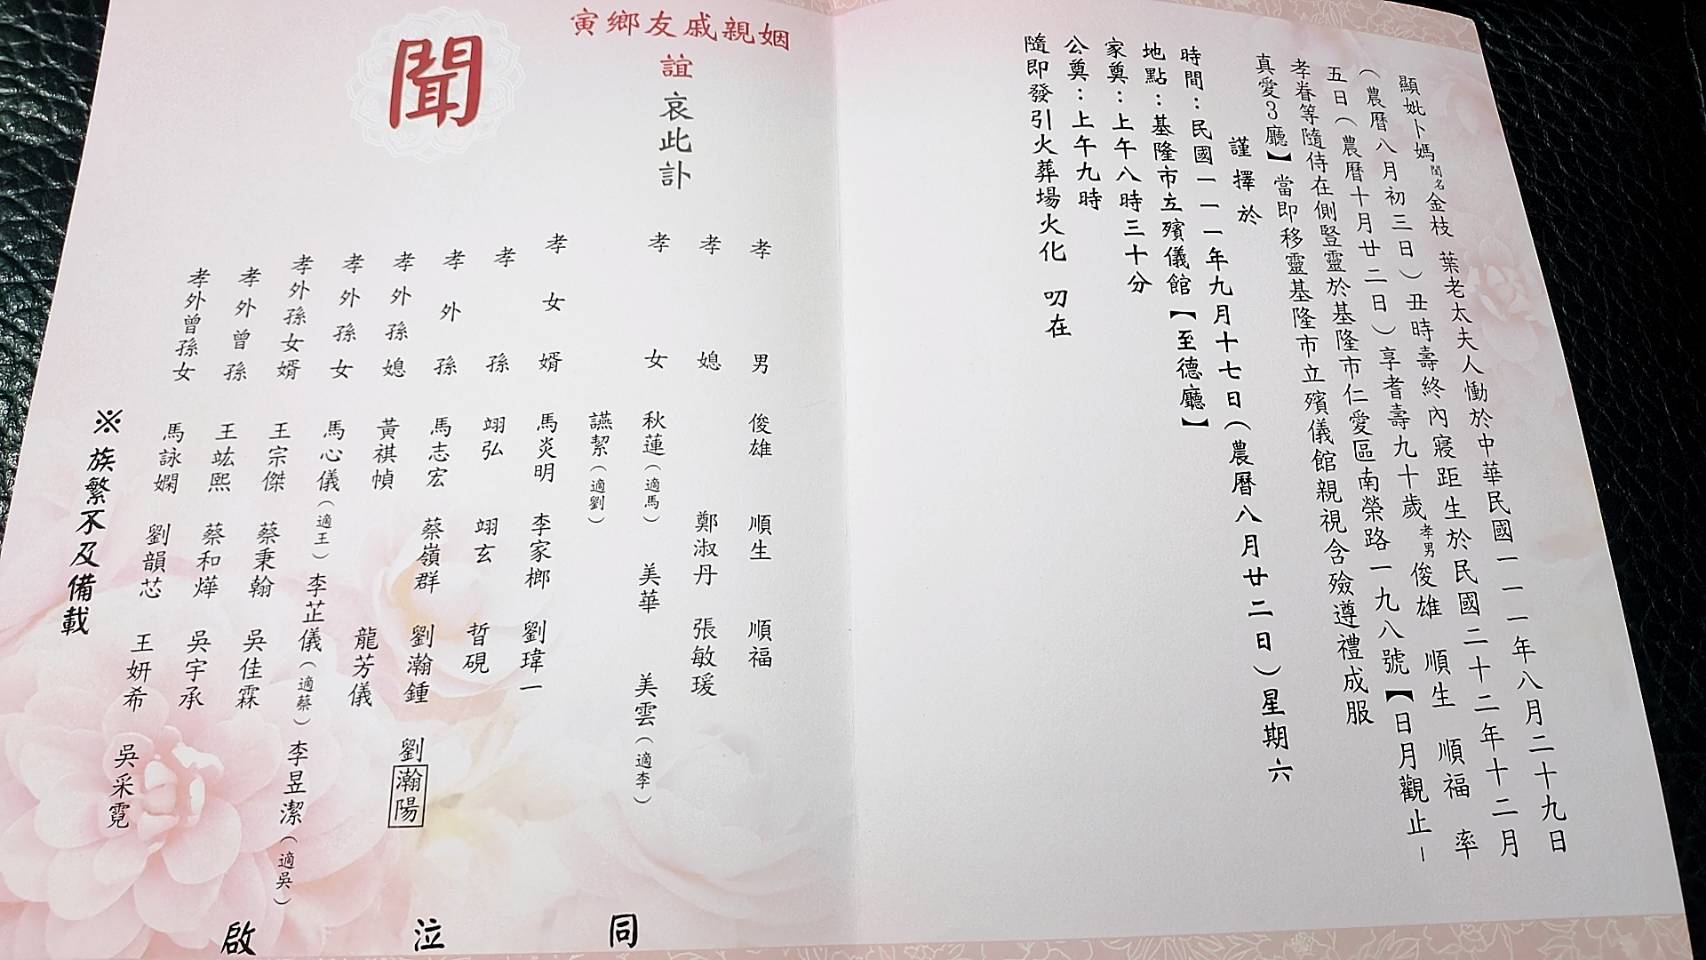 顯妣卜媽閨名金枝 葉老太夫人慟於中華民國一一一年八月二十九日
(農曆八月初三日)丑時壽終內寢距生於民國二十二年十二月
五日(農曆十月廿二日)享耆壽九十歲孝男俊雄 順生 順福 率
孝眷等隨侍在側豎靈於基隆市仁愛區南榮路一九八號【日月觀止–
真愛3廳】當即移靈基隆市立殯儀館親視含殮遵禮成服
謹擇於
時間:民國一一一年九月十七日(農曆八月廿二日)星期六
地點:基隆市立殯儀館【至德廳】
家奠:上午八時三十分
公奠:上午九時
隨即發引火葬場火化 叨在
寅鄉友戚親姻
誼哀此訃
聞
孝男 俊雄 順生 順福
孝媳 鄭淑丹 張敏瑗
孝女 秋蓮(適馬) 美華 美雲(適李)
讌絜(適劉)
孝女婿 馬炎明 李家榔 劉瑋一
孝孫 翊弘 翊玄 晢硯
孝外孫 馬志宏 蔡嶺群 劉瀚鍾 劉瀚陽
孝外孫媳 黃祺幀 龍芳儀
孝外孫女 馬心儀(適王) 李芷儀(適蔡) 李昱潔(適吳)
孝外孫女婿 王宗傑 蔡秉翰 吳佳霖
孝外曾孫 王竑熙 蔡和燁 吳宇承
孝外曾孫女 馬詠嫻 劉韻芯 王妍希 吳采霓
※族繁不及備載
同泣啟